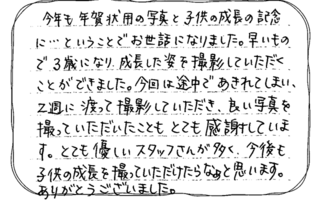 今年も年賀状用の写真と子供の成長の記念
に…ということでお世話になりました。早いもの
で3歳になり成長した姿を撮影していただく
ことができました。今回は途中であきれてしまい、
2週に渡って撮影していただき、良い写真を
撮っていただいたこともとても感謝していま
す。とても優しいスタッフさんが多く、今後も
子供の成長を撮っていただけたらなぁと思います。
ありがとうございました。